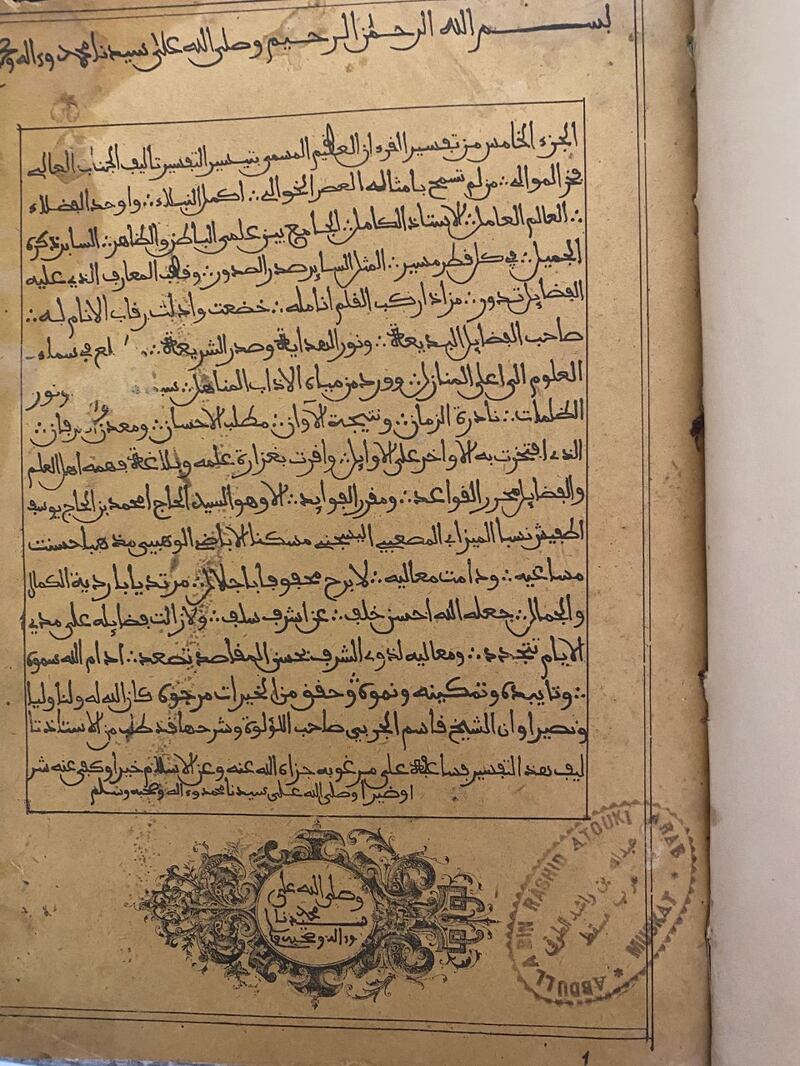 بسم الله الرحمن الرحيم وصلى الله على سيدنا محمد وءاله
الجزء الخامس من تفسير القرءان العظيم المسمى بتيسير التفسير تأليف الجناب العاله
فخر المواله ∴ من لم تسمح بامثاله العصر الخواله ∴ اكمل النبلاء ∴ واوحد الفضلاء
∴ العالم العامل ∴ الاستاذ الكامل ∴ الجامع بين علمى الباطن والظاهر ∴ الساير ذكره
الجميل ∴ في كل قطر مسير ∴ المثل الساير صدر الصدور ∴ وقطب المعارف الذي عليه
الفضايل تدور ∴ من اذ اركب القلم انامله ∴ خضعت واذلت رقاب الانام له ∴
صاحب الفضايل البديعة ∴ ونور الهداية وصدر الشريعة ∴ في سماء
العلوم الى اعلى المنازل ∴ وورد من مياه الاداب المناهل ∴ ونور
الظلمات ∴ نادرة الزمان ∴ ونتيجة الآوان ∴ مطلب الاحسان ∴ ومعدن
الذي افتخرت به الاواخر على الاوايل ∴ واقرت بغزارة علمه وبلاغة فهمه اهل العلم
والفضايل محرر القواعد ∴ ومقرر الفوايد ∴ الا وهو السيد الحاج امحمد بن الحاج يوسف
اطفيش نسبا الميزابي المصعبي اليسجني مسكنا الاباضي الوهبيبي مذهبا حسنت
مساعيه ∴ ودامت معاليه ∴ لا برح محفوفا باجلال ∴ مرتديا باردية الكمال
والجمال ∴ جعله الله احسن خلف ∴ عن اشرف سلف ∴ ولا زالت فضايله على مدى
الايام تتجدد ∴ ومعاليه لذوى الشرف بحسن المقاصد تصعد ∴ ادام الله سموه
∴ وتاييده وتمكينه ونموه وحقق من الخيرات مرجوه كان الله له ولنا وليا
ونصيرا وان الشيخ قاسم الجربي صاحب اللؤلوة وشرحها قد طلب من الاستاذ تا
ليف هذا التفسير فساعده على مرغوبه جزاه الله عنه وعن الاسلام خيرا وكفى عنه شر
اوضيرا وصلى الله على سيدنا محمد وءاله وصحبه وسلم
وصلى الله على
سيدنا محمد
وءاله وصحبه
ABDULLA BIN RASHID ATOUKI ARAB
* MUSKAT *
عبدالله بن راشد
عرب
مسقط
1